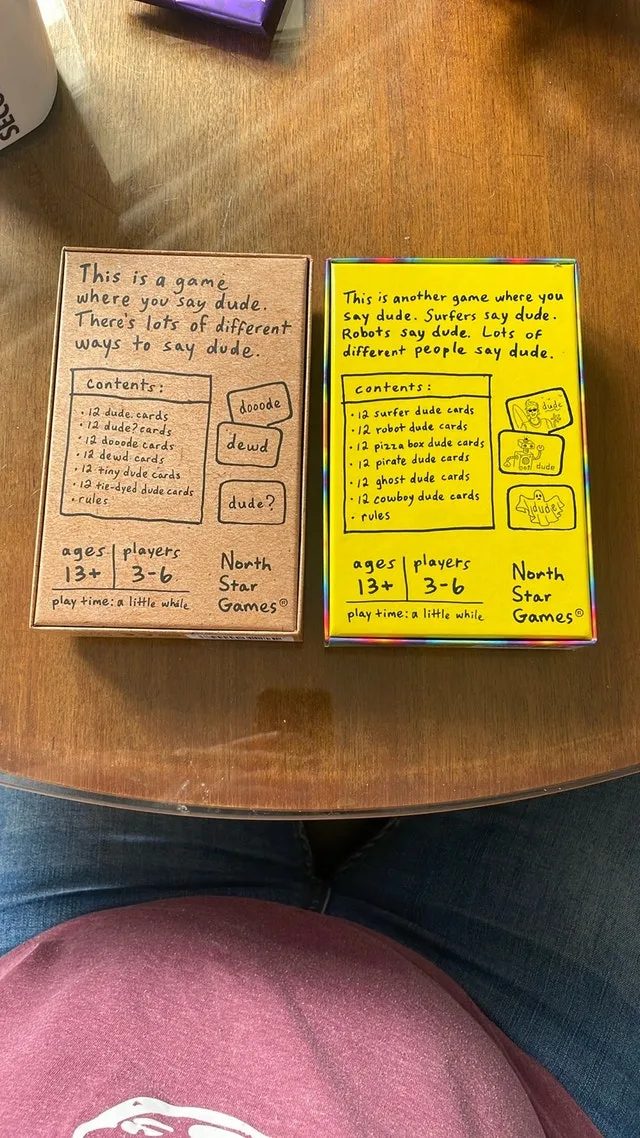 SECO
This is a game
where you say dude.
There's lots of different
ways to say dude.
contents:
• 12 dude cards
• 12 dude? cards
• 12 dooode cards
• 12 dewd cards
• 12 tiny dude cards
• 12 tie-dyed dude cards
• rules
dooode
dewd
dude?
ages
13+
players
3-6
play time: a little while
North
Star
Games®
This is another game where you
say dude. Surfers say dude.
Robots say dude. Lots of
different people say dude.
contents:
• 12 surfer dude cards
• 12 robot dude cards
• 12 pizza box dude cards
• 12 pirate dude cards
• 12 ghost dude cards
• 12 cowboy dude cards
• rules
dude
dude
dude
ages
13+
players
3-6
play time: a little while
North
Star
Games®